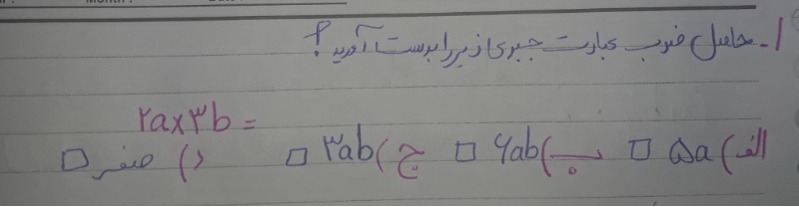 ۱- حاصل ضرب عبارت جبری زیر را بدست آورید؟
۲a×۳b=
الف) ۵a □ ب) ۶ab □ ج) ۳ab □ د) صفر □